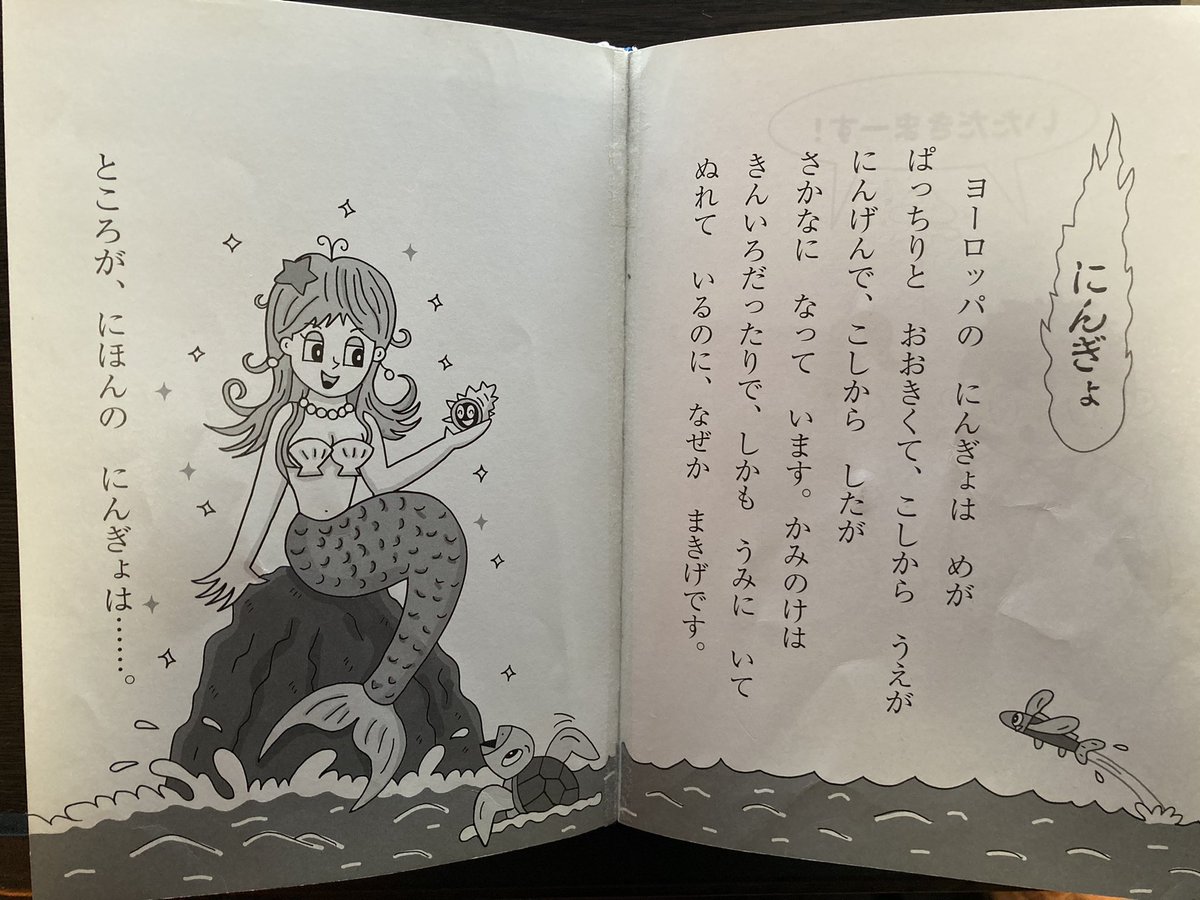 にんぎょ
ヨーロッパの にんぎょは めが
ぱっちりと おおきくて、こしから うえが
にんげんで、こしから したが
さかなに なって います。かみのけは
きんいろだったりで、しかも うみに いて
ぬれて いるのに、なぜか まきげです。
ところが、にほんの にんぎょは……。
いただきまーす!